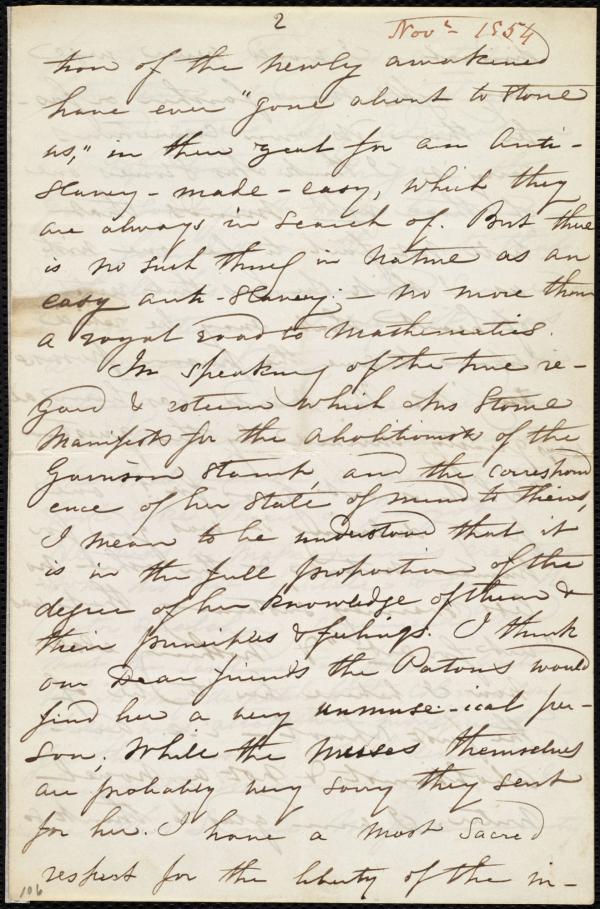 2
Nov^r 1854
tion of the newly awakened
have ever "gone about to stone
us," in their zeal for an Anti-
slavery - made - easy, which they
are always in search of. But there
is no such thing in nature as an
easy anti-slavery; - no more than
a royal road to Mathematics.
In speaking of the true re-
gard & esteem which Mrs Stowe
manifests for the Abolitionists of the
Garrison stamp, and the correspond
ence of her state of mind to theirs,
I mean to be understood that it
is in the full proportion of the
degree of her knowledge of them &
their principles & feelings. I think
our dear friends the Patons would
find her a very unmuse-ical per-
son; While the muses themselves
are probably very sorry they sent
for her. I have a most sacred
respect for the liberty of the in-
106